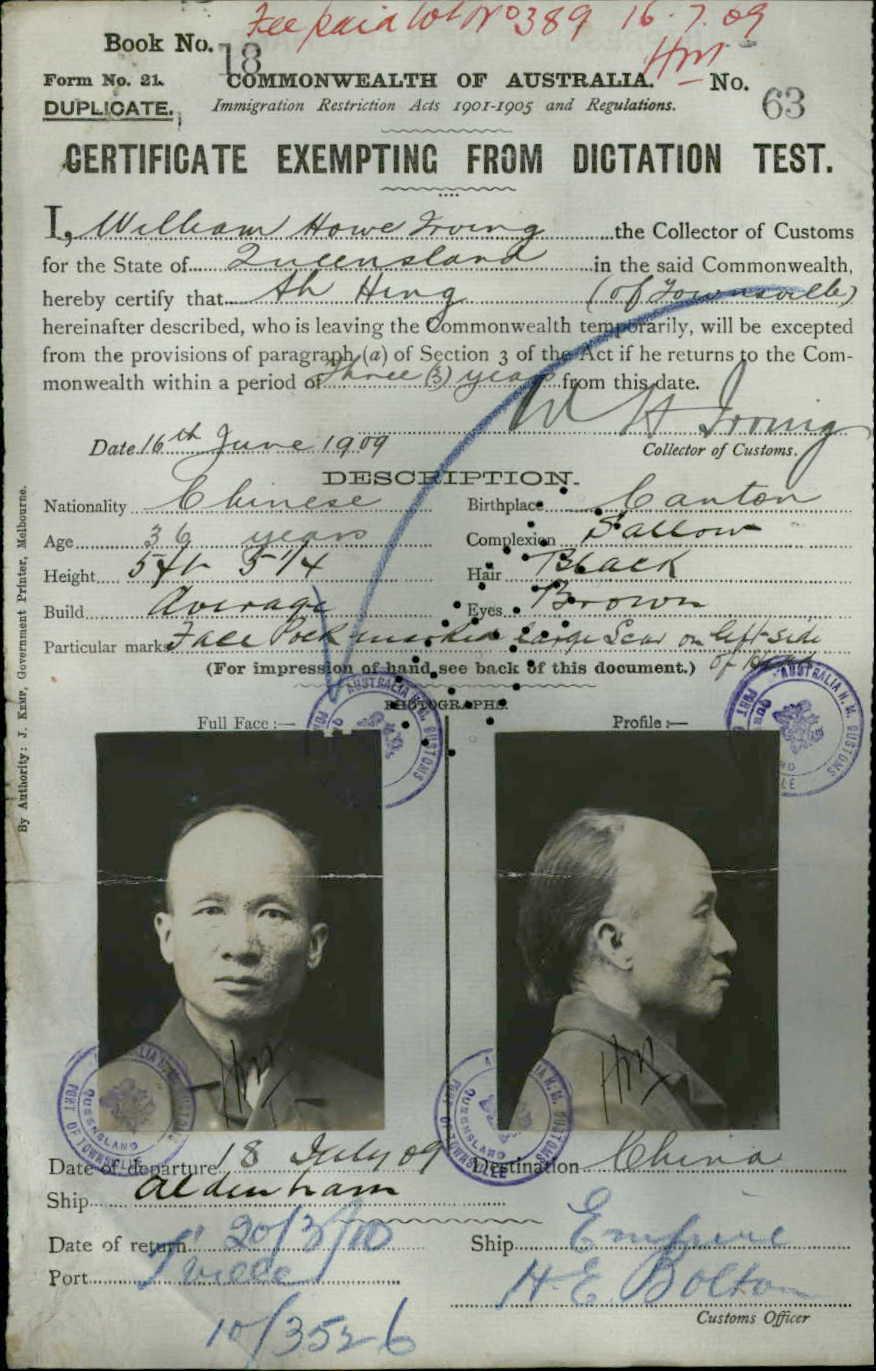 Fee paid lot No 389 16.7.09
HM
Book No. 18
Form No. 21.
COMMONWEALTH OF AUSTRALIA. No. 63
DUPLICATE.
Immigration Restriction Acts 1901-1905 and Regulations.
CERTIFICATE EXEMPTING FROM DICTATION TEST.
I, William Howe Irving the Collector of Customs
for the State of Queensland in the said Commonwealth,
hereby certify that Ah Hing (of Townsville)
hereinafter described, who is leaving the Commonwealth temporarily, will be excepted
from the provisions of paragraph (a) of Section 3 of the Act if he returns to the Com-
monwealth within a period of Three (3) years from this date.
W H Irving
Date 16th June 1909
Collector of Customs.
DESCRIPTION.
Nationality Chinese Birthplace Canton
Age 36 years Complexion Sallow
Height 5ft 5 1/4 Hair Black
Build Average Eyes Brown
Particular marks Face Pock marked Large Scar on left side
of
(For impression of hand see back of this document.)
PHOTOGRAPHS.
Full Face :— Profile :—
By Authority: J. KEMP, Government Printer, Melbourne.
AUSTRALIA H.M. CUSTOMS
PORT
AUSTRALIA H.M. CUSTOMS
PORT
HM
HM
AUSTRALIA H.M. CUSTOMS
QUEENSLAND
PORT OF TOWNSVILLE
AUSTRALIA H.M. CUSTOMS
QUEENSLAND
PORT OF TOWNSVILLE
Date of departure 18 July 09 Destination China
Ship Aldenham
Date of return 20/3/10 Ship Empire
Port T'ville H. E. Bolton
Customs Officer
10/3526